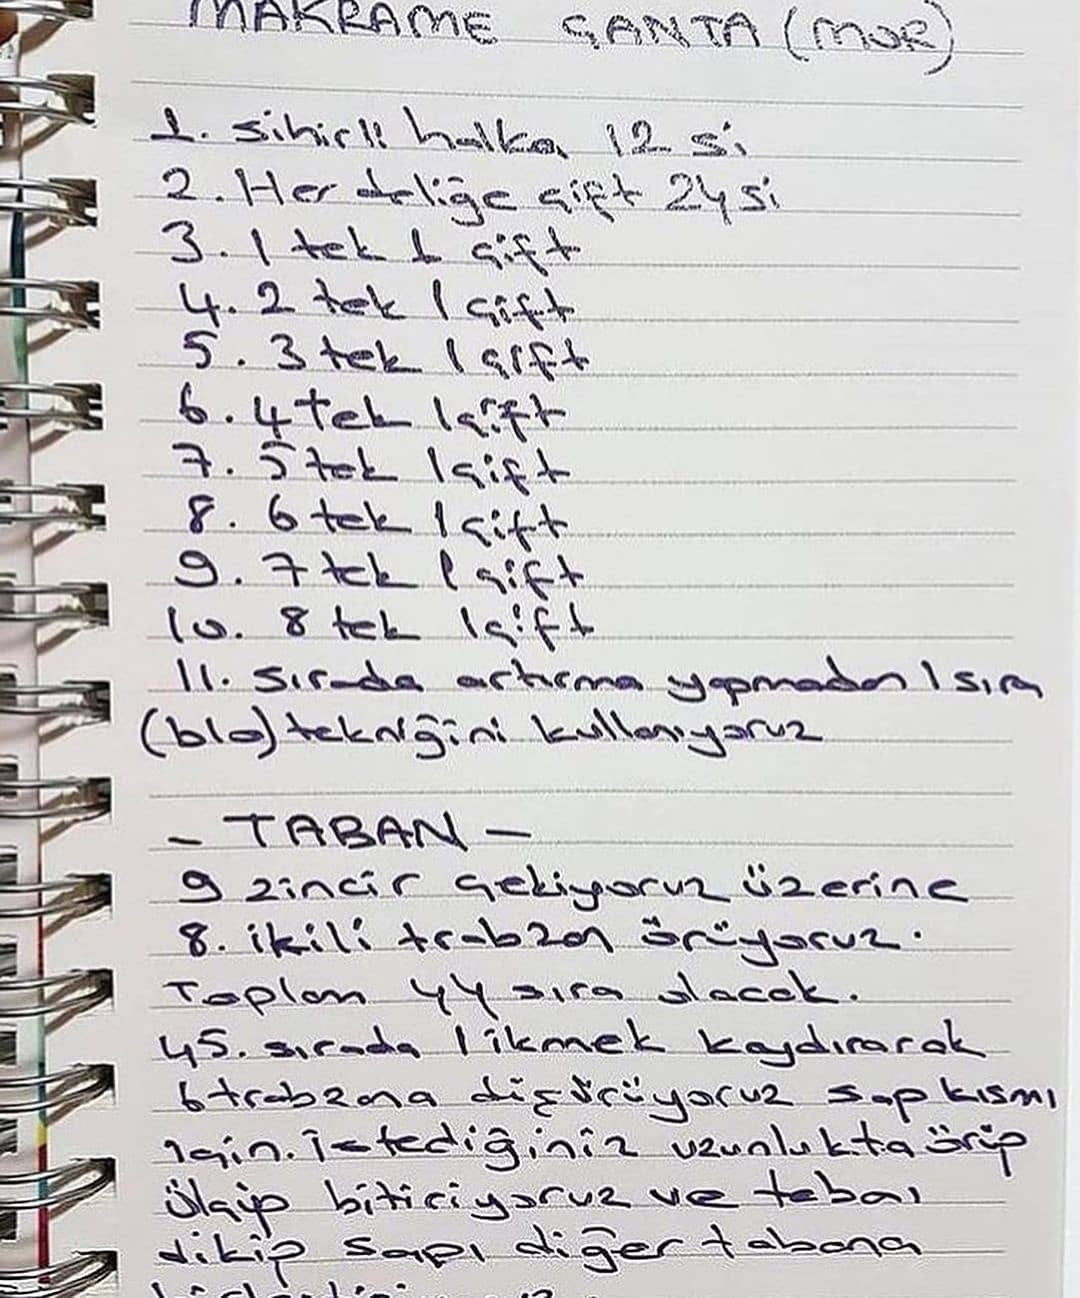 MAKRAME ÇANTA (MOR)
1. sihirli halka 12 si
2. Her deliğe çift 24 si
3. 1 tek 1 çift
4. 2 tek 1 çift
5. 3 tek 1 çift
6. 4 tek 1 çift
7. 5 tek 1 çift
8. 6 tek 1 çift
9. 7 tek 1 çift
10. 8 tek 1 çift
11. sırada artırma yapmadan 1 sıra
(blo) tekniğini kullanıyoruz
- TABAN -
9 zincir çekiyoruz üzerine
8. ikili trabzan örüyoruz.
Toplam 44 sıra olacak.
45. sırada 1 ilmek kaydırarak
6 trabzana düşürüyoruz sap kısmı
için. İstediğiniz uzunlukta örüp
ölçüp bitiriyoruz ve tabanı
dikip sapı diğer tabana